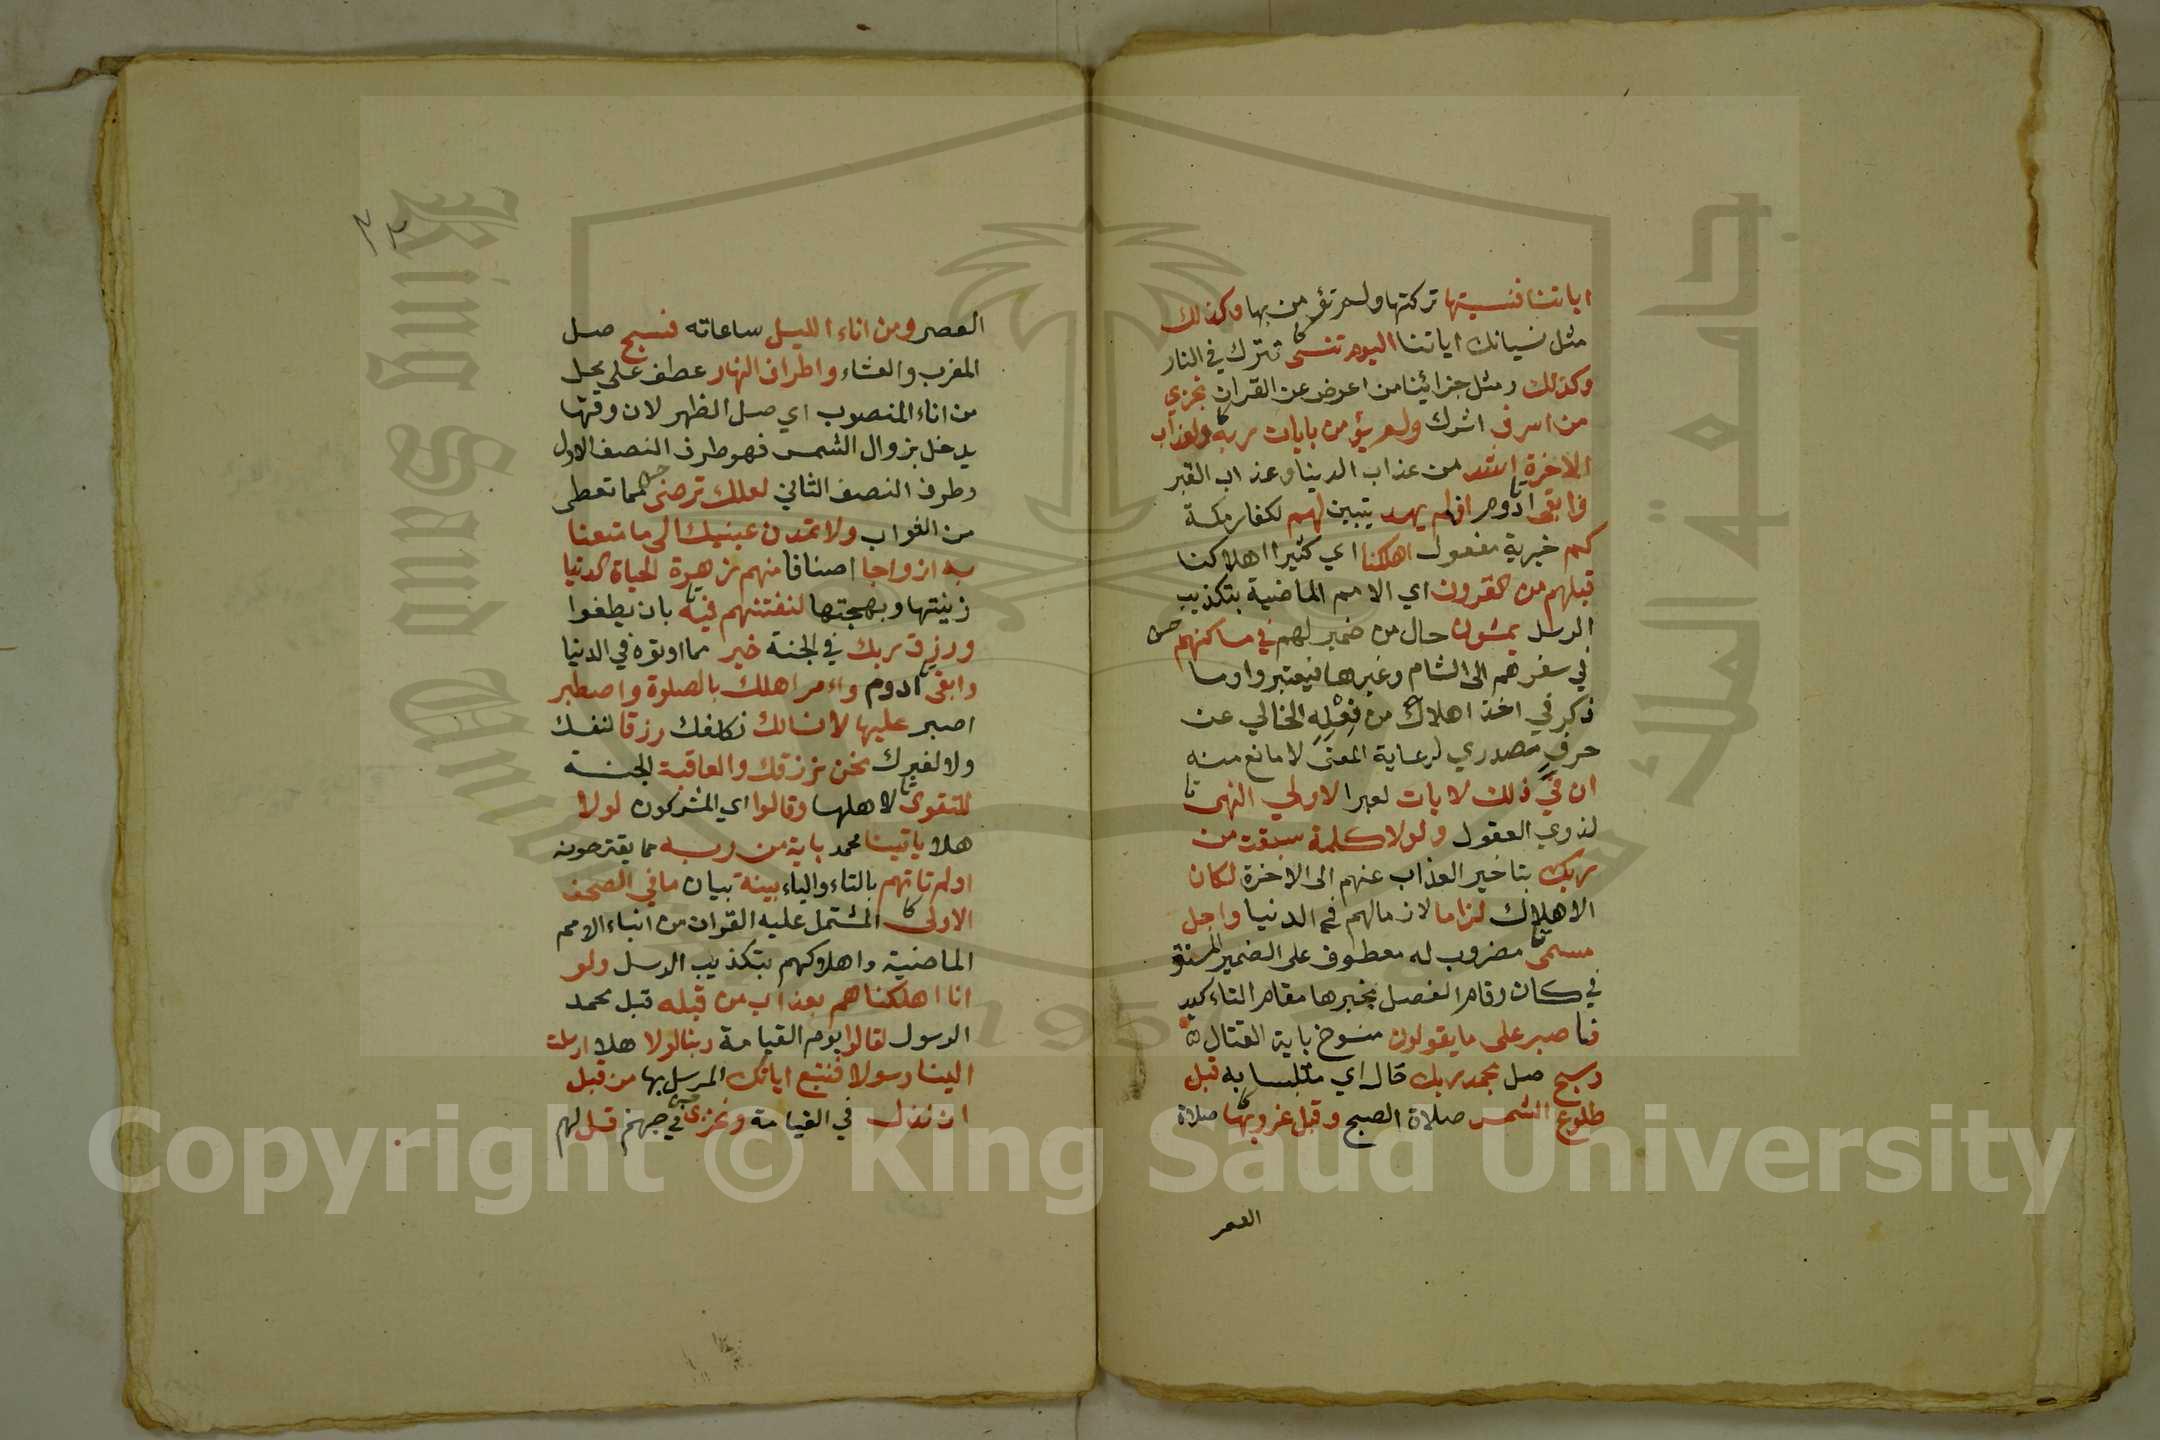 اياتنا فنسيتها تركتها ولم تؤمن بها وكذلك
مثل نسيانك اياتنا اليوم تنسى تترك في النار
وكذلك ومثل جزائنا من اعرض عن القران نجزي
من اسرف اشرك ولم يؤمن بايات ربه ولعذاب
الاخرة اشد من عذاب الدينا وعذاب القبر
وابقى ادوم افلم يهد يتبين لهم لكفار مكة
كم خبرية مفعول اهلكنا اي كثيرا اهلاكنا
قبلهم من القرون اي الامم الماضية بتكذيب
الرسل يمشون حال من ضمير لهم في مساكنهم
في سفرهم الى الشام وغيرها فيعتبروا وما
ذكر في اخذ اهلاك من فعله الخالي عن
حرف مصدري لرعاية المعنى لا مانع منه
ان في ذلك لايات لعبرا لاولي النهى
لذوي العقول ولولا كلمة سبقت من
ربك بتاخير العذاب عنهم الى الاخرة لكان
الاهلاك لزاما لازما لهم في الدنيا واجل
مسمى مضروب له معطوف على الضمير المستتر
في كان وقام الفصل بخبرها مقام التاكيد
فاصبر على ما يقولون منسوخ باية القتال
وسبح صل بحمد ربك حال اي متلبسا به قبل
طلوع الشمس صلاة الصبح وقبل غروبها صلاة
العصر
٣٢
العصر ومن اناء الليل ساعاته فسبح صل
المغرب والعشاء واطراف النهار عطف على محل
من اناء المنصوب اي صل الظهر لان وقتها
يدخل بزوال الشمس فهو طرف النصف الاول
وطرف النصف الثاني لعلك ترضى بما تعطى
من الثواب ولا تمدن عينيك الى ما متعنا
به ازواجا اصنافا منهم زهرة الحياة الدنيا
زينتها وبهجتها لنفتنهم فيه بان يطغوا
ورزق ربك في الجنة خير مما اوتوه في الدنيا
وابقى ادوم وامر اهلك بالصلوة واصطبر
اصبر عليها لا نسالك نكلفك رزقا لنفسك
ولا لغيرك نحن نرزقك والعاقبة الجنة
للتقوى لاهلها وقالوا اي المشركون لولا
هلا ياتينا محمد باية من ربه مما يقترحونه
اولم تاتهم بالتاء والياء بينة بيان ما في الصحف
الاولى المشتمل عليه القران من انباء الامم
الماضية واهلاكهم بتكذيب الرسل ولو
انا اهلكناهم بعذاب من قبله قبل محمد
الرسول لقالوا يوم القيامة ربنا لولا هلا ارسلت
الينا رسولا فنتبع اياتك المرسل بها من قبل
ان نذل في القيامة ونخزى في جهنم قل لهم
King Saud University
جامعة الملك سعود
1957
Copyright © King Saud University